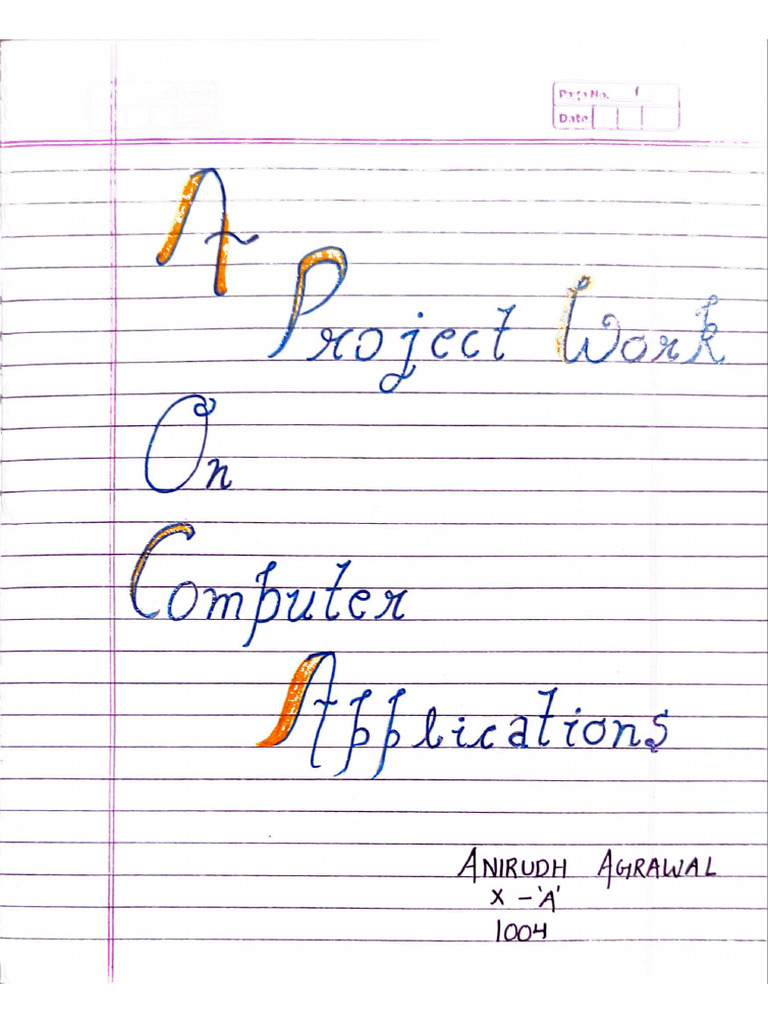 Page No. 1
Date
A
Project Work
On
Computer
Applications
ANIRUDH AGRAWAL
X - 'A'
1004